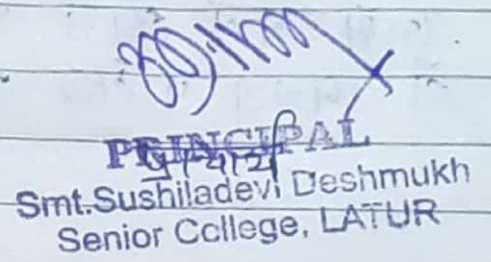 PRINCIPAL
प्राचार्य
Smt.Sushiladevi Deshmukh
Senior College, LATUR